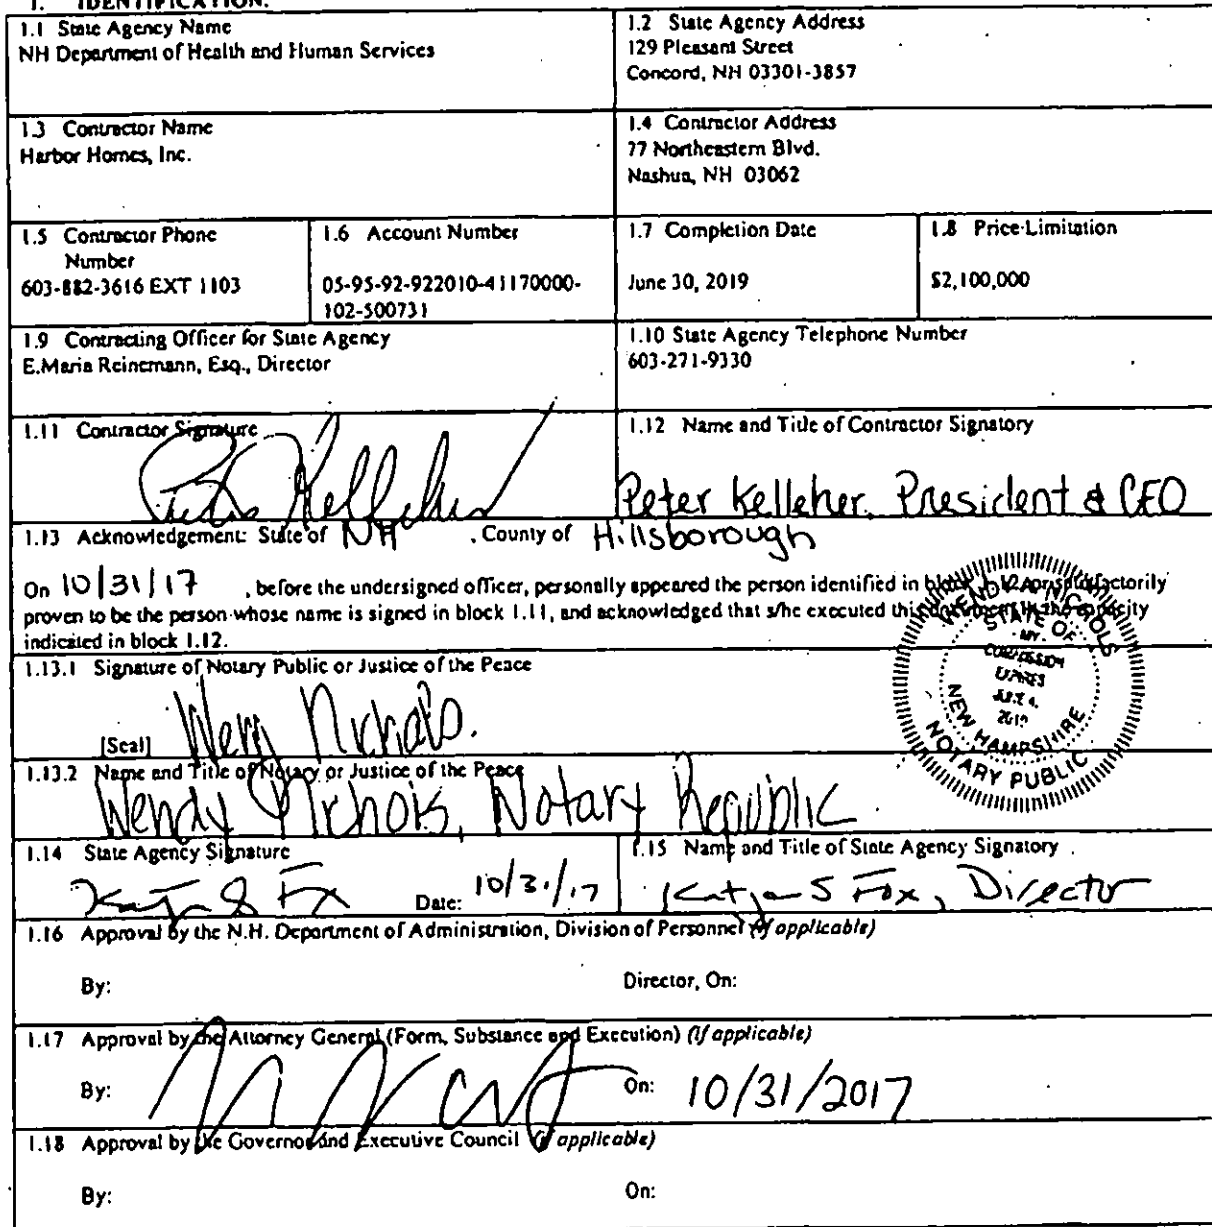 1. IDENTIFICATION.
1.1 State Agency Name
NH Department of Health and Human Services
1.2 State Agency Address
129 Pleasant Street
Concord, NH 03301-3857
1.3 Contractor Name
Harbor Homes, Inc.
1.4 Contractor Address
77 Northeastern Blvd.
Nashua, NH 03062
1.5 Contractor Phone
Number
603-882-3616 EXT 1103
1.6 Account Number
05-95-92-922010-41170000-
102-500731
1.7 Completion Date
June 30, 2019
1.8 Price Limitation
$2,100,000
1.9 Contracting Officer for State Agency
E.Maria Reinemann, Esq., Director
1.10 State Agency Telephone Number
603-271-9330
1.11 Contractor Signature
Peter Kelleher
1.12 Name and Title of Contractor Signatory
Peter Kelleher, President & CEO
1.13 Acknowledgement: State of NH , County of Hillsborough
On 10/31/17 , before the undersigned officer, personally appeared the person identified in block 1.12, or satisfactorily
proven to be the person whose name is signed in block 1.11, and acknowledged that s/he executed this document in the capacity
indicated in block 1.12.
1.13.1 Signature of Notary Public or Justice of the Peace
Wendy Nichols
[Seal]
WENDY A NICHOLS
STATE OF
MY
COMMISSION
EXPIRES
JUNE 4,
2019
NEW HAMPSHIRE
NOTARY PUBLIC
1.13.2 Name and Title of Notary or Justice of the Peace
Wendy Nichols, Notary Republic
1.14 State Agency Signature
Katja S Fox Date: 10/31/17
1.15 Name and Title of State Agency Signatory
Katja S Fox, Director
1.16 Approval by the N.H. Department of Administration, Division of Personnel (if applicable)
By: Director, On:
1.17 Approval by the Attorney General (Form, Substance and Execution) (if applicable)
By: On: 10/31/2017
1.18 Approval by the Governor and Executive Council (if applicable)
By: On: